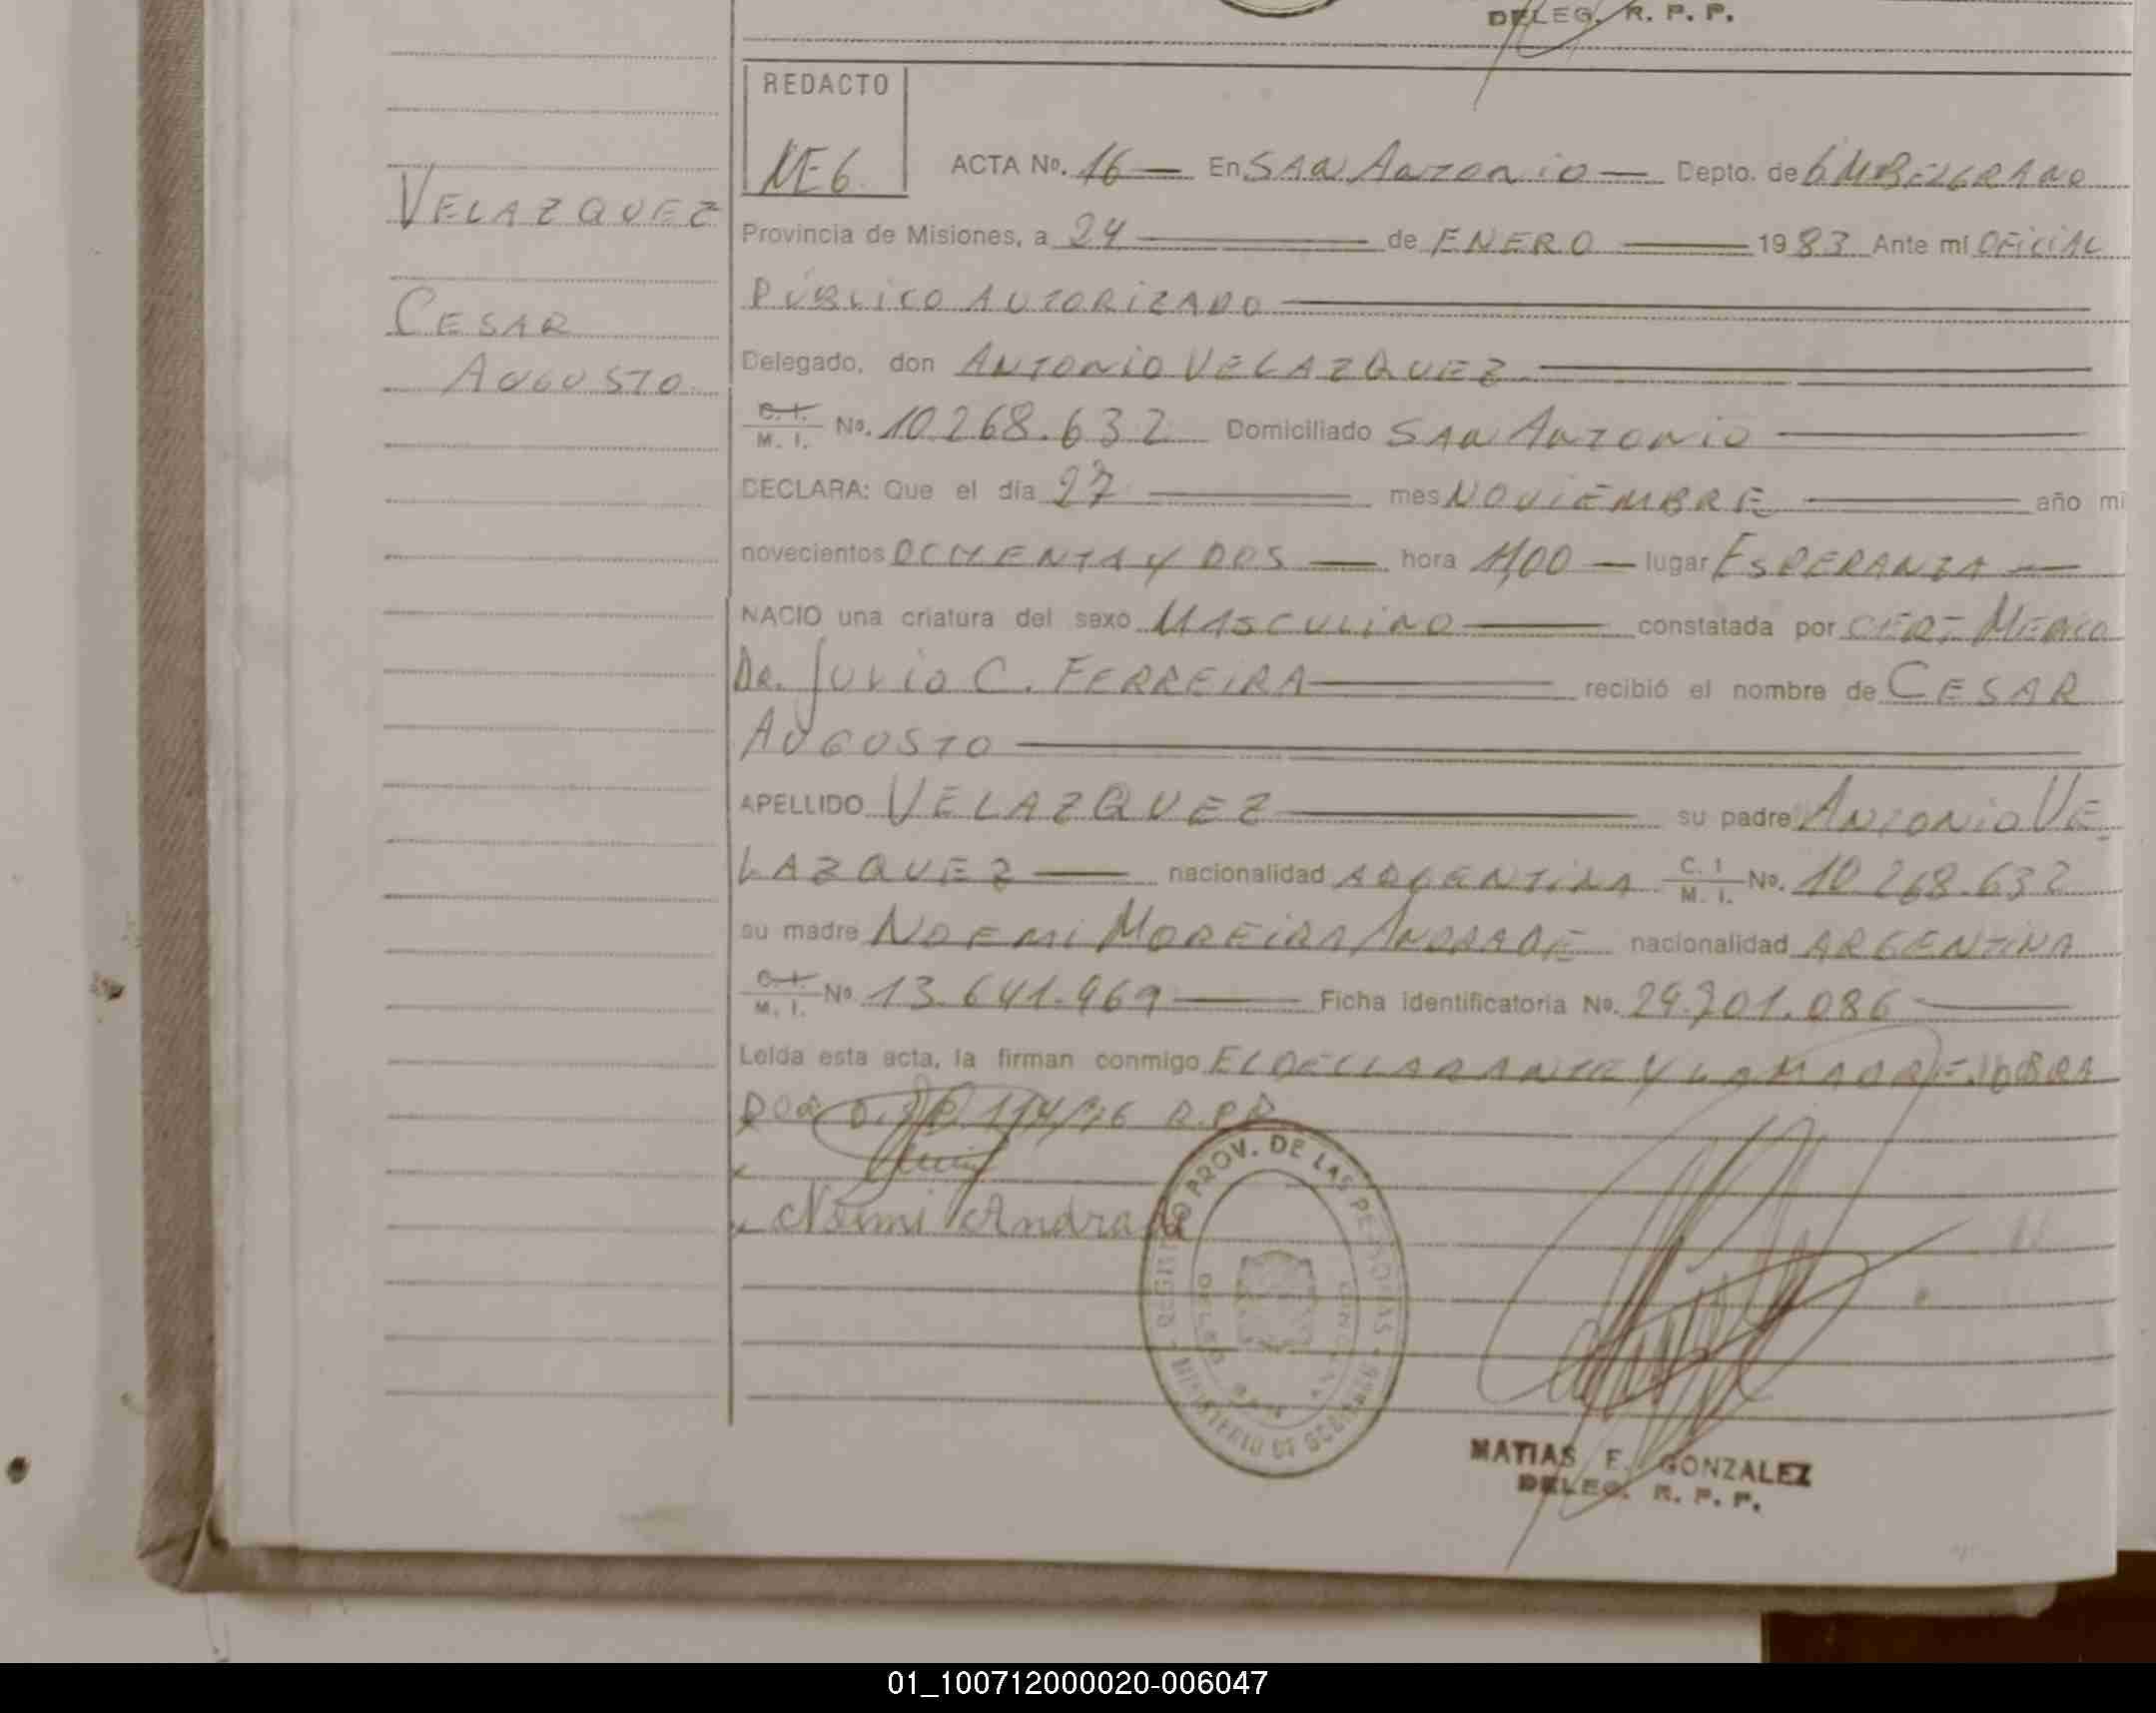 DELEG. R. P. P.
REDACTO
ACTA No. 16 — En SAN ANTONIO — Depto. de G M BELGRANO
VELAZQUEZ
Provincia de Misiones, a 24 — de ENERO — 1983 Ante mí OFICIAL
PÚBLICO AUTORIZADO —
CESAR
AUGUSTO
Delegado, don ANTONIO VELAZQUEZ —
C. I. / M. I. No. 10.268.632 Domiciliado SAN ANTONIO —
DECLARA: Que el día 27 — mes NOVIEMBRE — año mi
novecientos OCHENTA Y DOS — hora 11,00 — lugar ESPERANZA —
NACIO una criatura del sexo MASCULINO — constatada por CERT MEDICO
DR. JULIO C. FERREIRA — recibió el nombre de CESAR
AUGUSTO —
APELLIDO VELAZQUEZ — su padre ANTONIO VE
LAZQUEZ — nacionalidad ARGENTINA C. I / M. I. No. 10.268.632
su madre NOEMI MOREIRA ANDRADE nacionalidad ARGENTINA
C. I. / M. I. No 13.641.969 — Ficha identificatoria No. 29.701.086 —
Leída esta acta, la firman conmigo EL DECLARANTE Y LA MADRE
Noemi Andrade
REGISTRO PROV. DE LAS PERSONAS
MINISTERIO DE GOBIERNO
MATIAS F. GONZALEZ
DELEG. R. P. P.
01_100712000020-006047